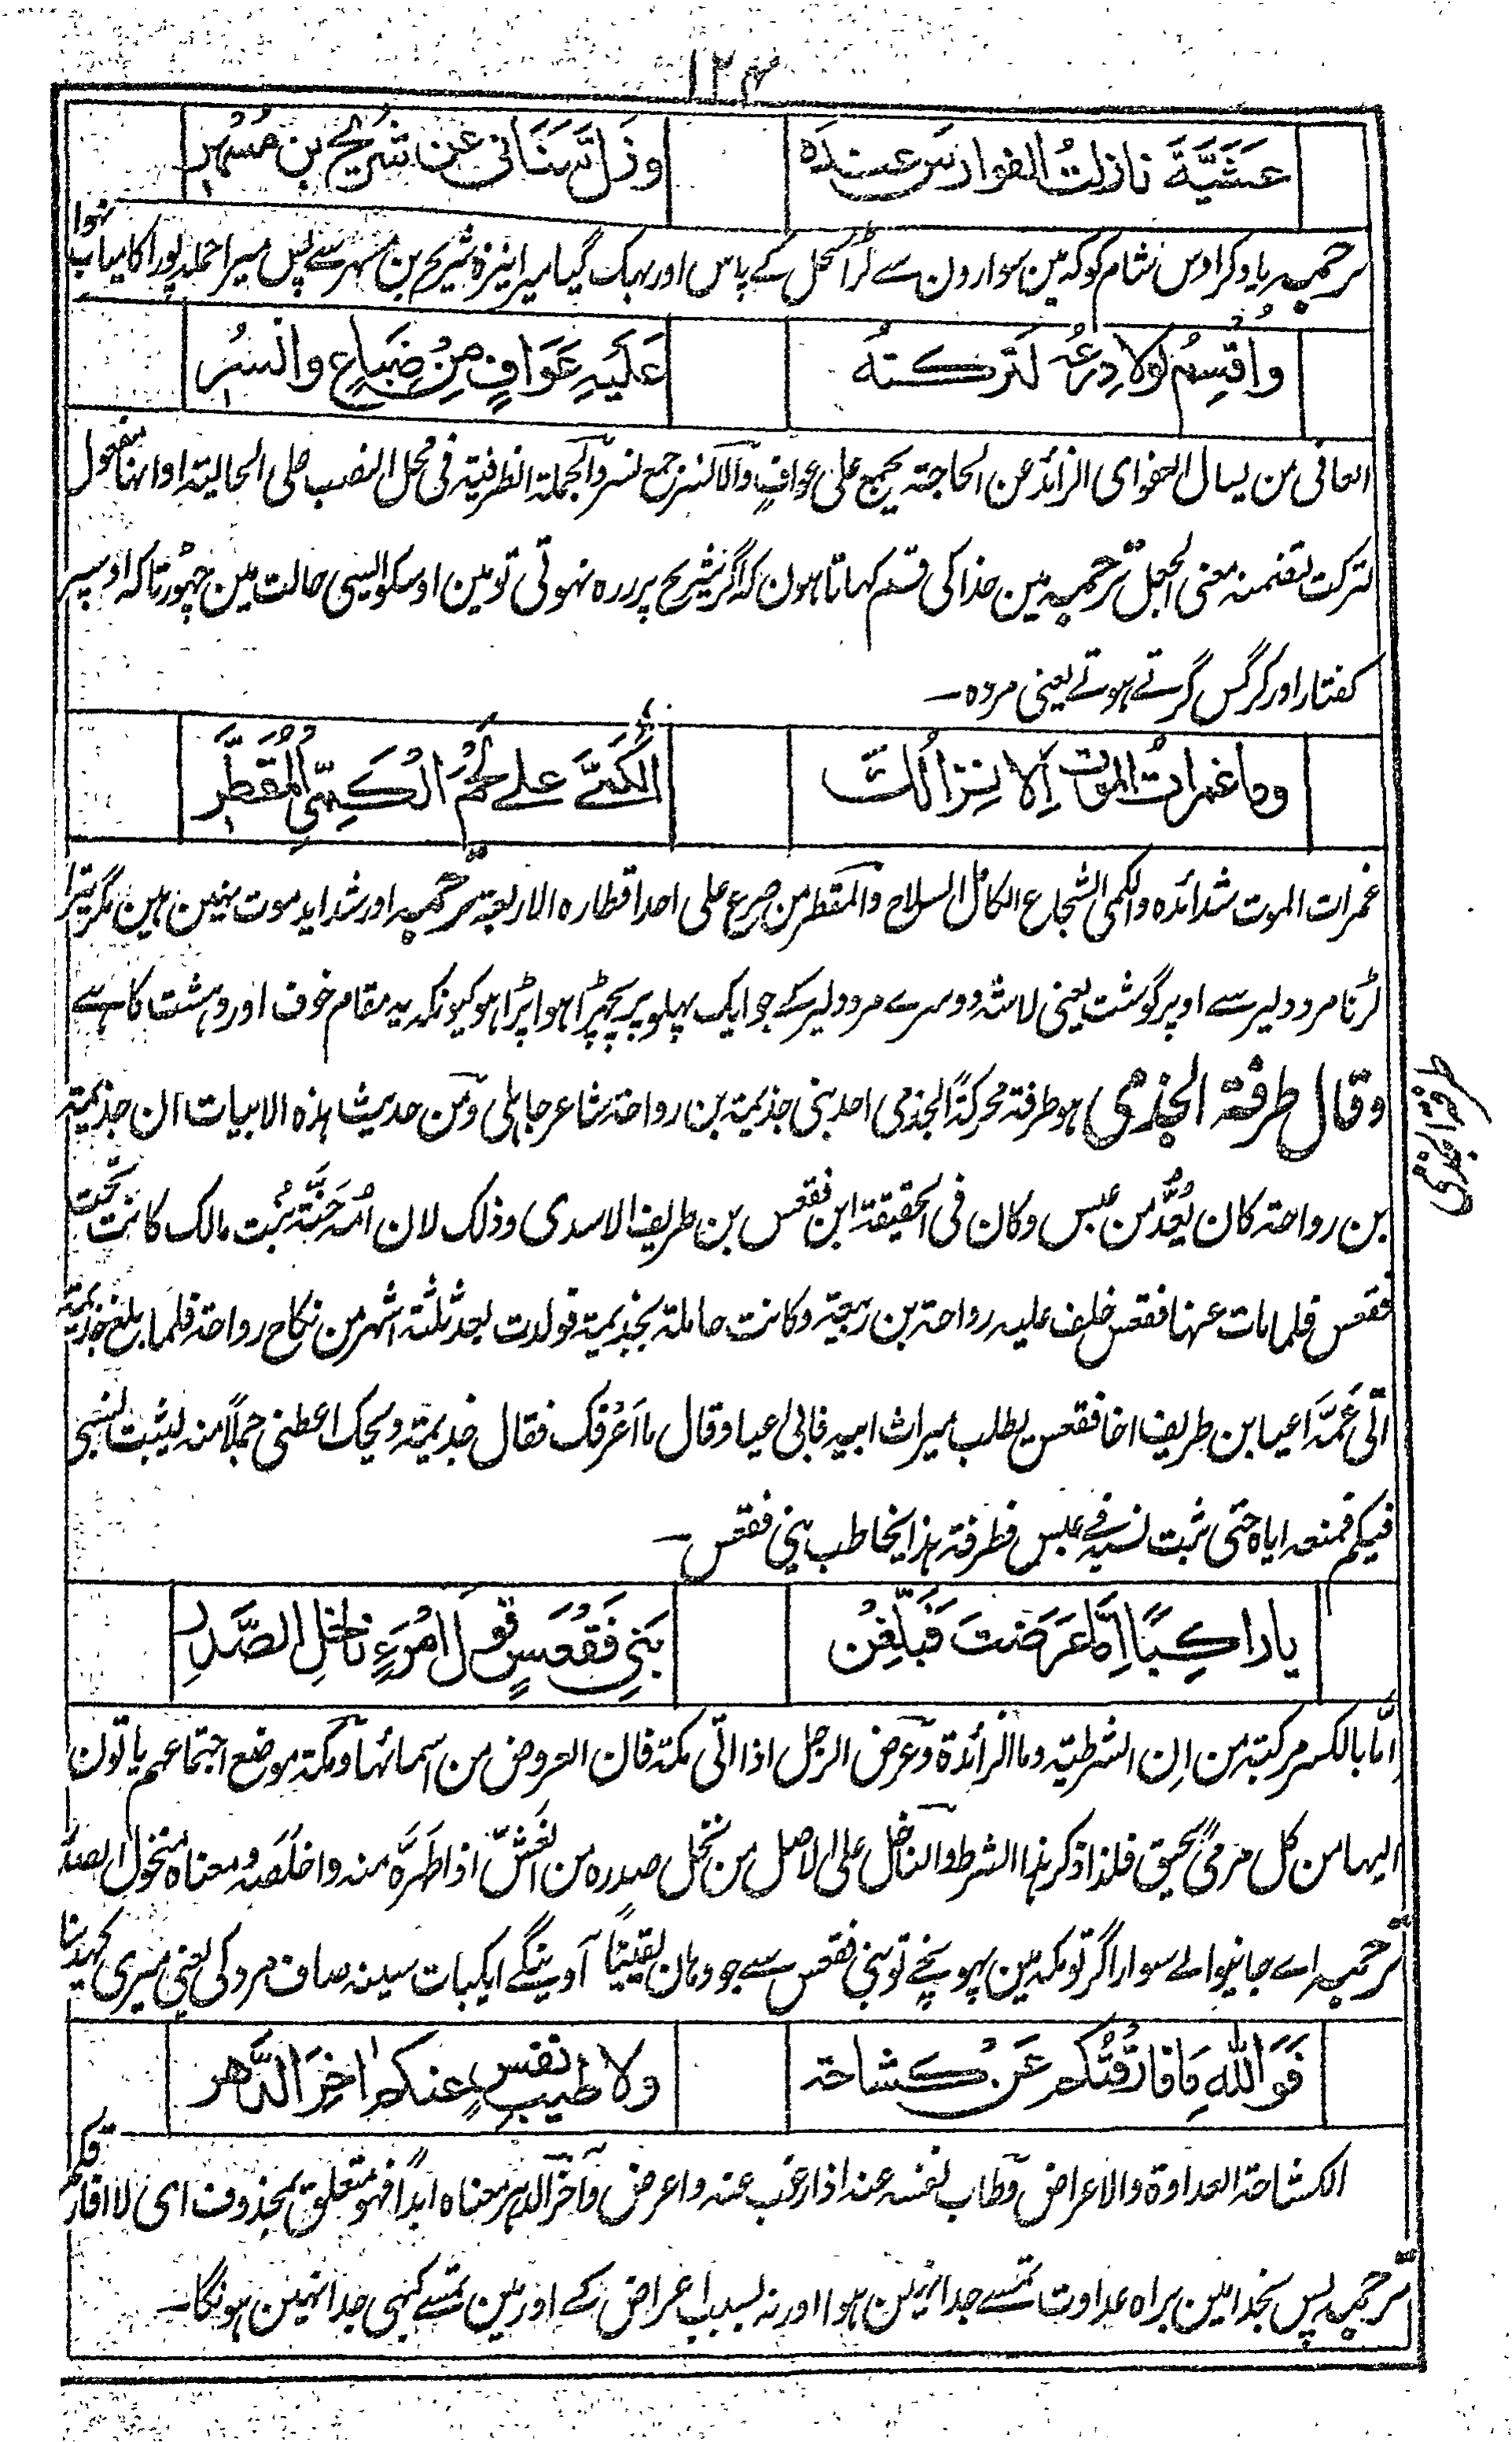 ۱۲۴
عَشَيَّةَ نازلتُ الفوارسَ عنده وزَلَّ سِنَانى عن شُريح بن مُسْهِر
ترجمہ یاد کر اوس شام کو کہ مین سوارون سے لڑا کحل کے پاس اور بہک گیا میرا نیزہ شریح بن مسہر سے پس میرا حملہ پورا کامیاب نہوا
واُقْسِمُ لولا دِرْعُه لَتركتهُ عَلَيهِ عَوَافٍ مِنْ ضِبَاعٍ وانسُر
العافی من یسال العفو ای الزائد عن الحاجتہ یجمع علی عوافٍ والانسر جمع نسر والجملۃ الظرفیۃ فی محل النصب علی الحالیتہ او انہا مفعول
لترکت لتضمنہ معنی الجعل ترجمہ مین خدا کی قسم کہاتا ہون کہ اگر شریح پر زرہ نہوتی تو مین اوسکو الیسی حالت مین چہوڑتا کہ اوسپر
کفتار اور کرگس گرتے ہوتے یعنی مردہ ۔
وما غمراتُ الموت اِلا نِزالُكَ الْكَمِىَّ على لحمِ الْكَمِىّ المُقَطَّر
غمرات الموت شدائدہ والکمی الشجاع الکامل السلاح والمقطر من صرع علی احد اقطارہ الاربعۃ ترجمہ اور شداید موت نہین ہین مگر تیرا
لڑنا مرد دلیر سے اوپر گوشت یعنی لاشہ دوسرے مرد دلیر کے جو ایک پہلو پر بچہڑا ہوا پڑا ہو کیونکہ یہ مقام خوف اور دہشت کا ہے
وقال طرفۃ الجذمی ہو طرفۃ محرکۃً الجذمی احد بنی جذیمۃ بن رواحۃ شاعر جاہلی ومن حدیث ہذہ الابیات ان جذیمتہ
بن رواحتہ کان یُعَدُّ من عبس وکان فی الحقیقۃ ابن فقعس بن طریف الاسدی وذلک لان امہ حَنَّۃ بنت مالک کانت تحت
فقعس فلما مات عنہا فقعس خلف علیہ رواحتہ بن ربیعۃ وکانت حاملتہ بجذیمتہ فولدت لبعد ثلثتہ اشہر من نکاح رواحۃ فلما بلغ جذیمۃ
اتی عَمَّہ اعیا بن طریف اخا فقعس یطلب میراث ابیہ فابی اعیا وقال ما اَعْرُفک فقال جذیمتہ ویحک اعطنی جملًا منہ لیثبت نسبی
فیکم فمنعہ ایاہ حتی ثبت نسبہ فے عبس فطرفۃ ہذا یخاطب بنی فقعس ۔
یا راكِبًا اِمَّا عَرَضتَ فَبَلِّغنْ بَنِى فَقْعَسٍ قولَ امْرءٍ ناخلِ الصَّدر
اِمّا بالکسر مرکبتہ من اِن الشرطیتہ وما الزائدۃ وعرض الرجل اذا اتی مکۃ فان العروض من اسمائہا ومکۃ موضع اجتماعہم یاتون
الیہا من کل مرمیً سحیق فلذا ذکر ہذا الشرط والناخل علی الاصل من نخل صدرہ من الغش اذا طہرہ منہ واخلَصَہ ومعناہ منخول الصدر
ترجمہ اے جانیوالے سوار اگر تو مکہ مین پہونچے تو بنی فقعس سے جو وہان یقینًا آوینگے ایکبات سینہ صاف مرد کی یعنی میری کہدینا
فَوَاللهِ مَا فارَقْتُكم عَنْ كشاحۃ ولا طیبِ نفسٍ عنكم اٰخِرَ الدَّهر
الکشاحۃ العداوۃ والاعراض وطاب نفسہ عنہ اذا رغب عنہ واعرض وآخر الدہر معناہ ابداً فہو متعلق بمحذوف ای لا افارقکم
ترجمہ پس بخدا مین براہ عداوت تمسے جدا نہین ہوا اور نہ بسبب اعراض کے اور مین تمسے کبہی جدا نہین ہونگا ۔